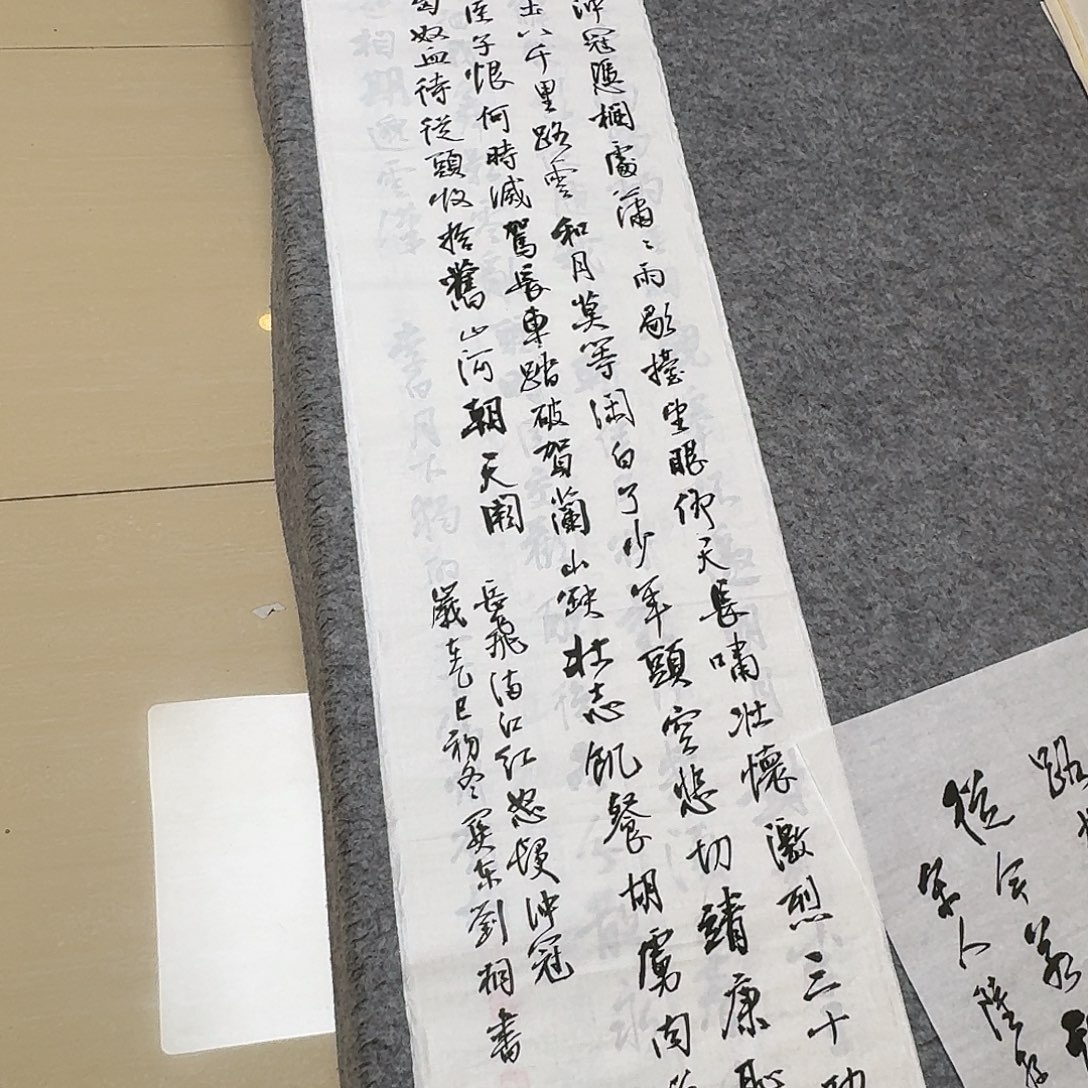 沖冠憑欄處瀟〻雨歇擡望眼仰天長嘯壯懷激烈三十功
土八千里路雲和月莫等閑白了少年頭空悲切靖康恥
臣子恨何時滅駕長車踏破賀蘭山缺壯志飢餐胡虜肉
匈奴血待從頭收拾舊山河朝天闕
岳飛滿江紅怒髮沖冠
歲在乙巳初冬関东劉桐書
相期邈雲漢
李白月下獨酌
路
宋人陸